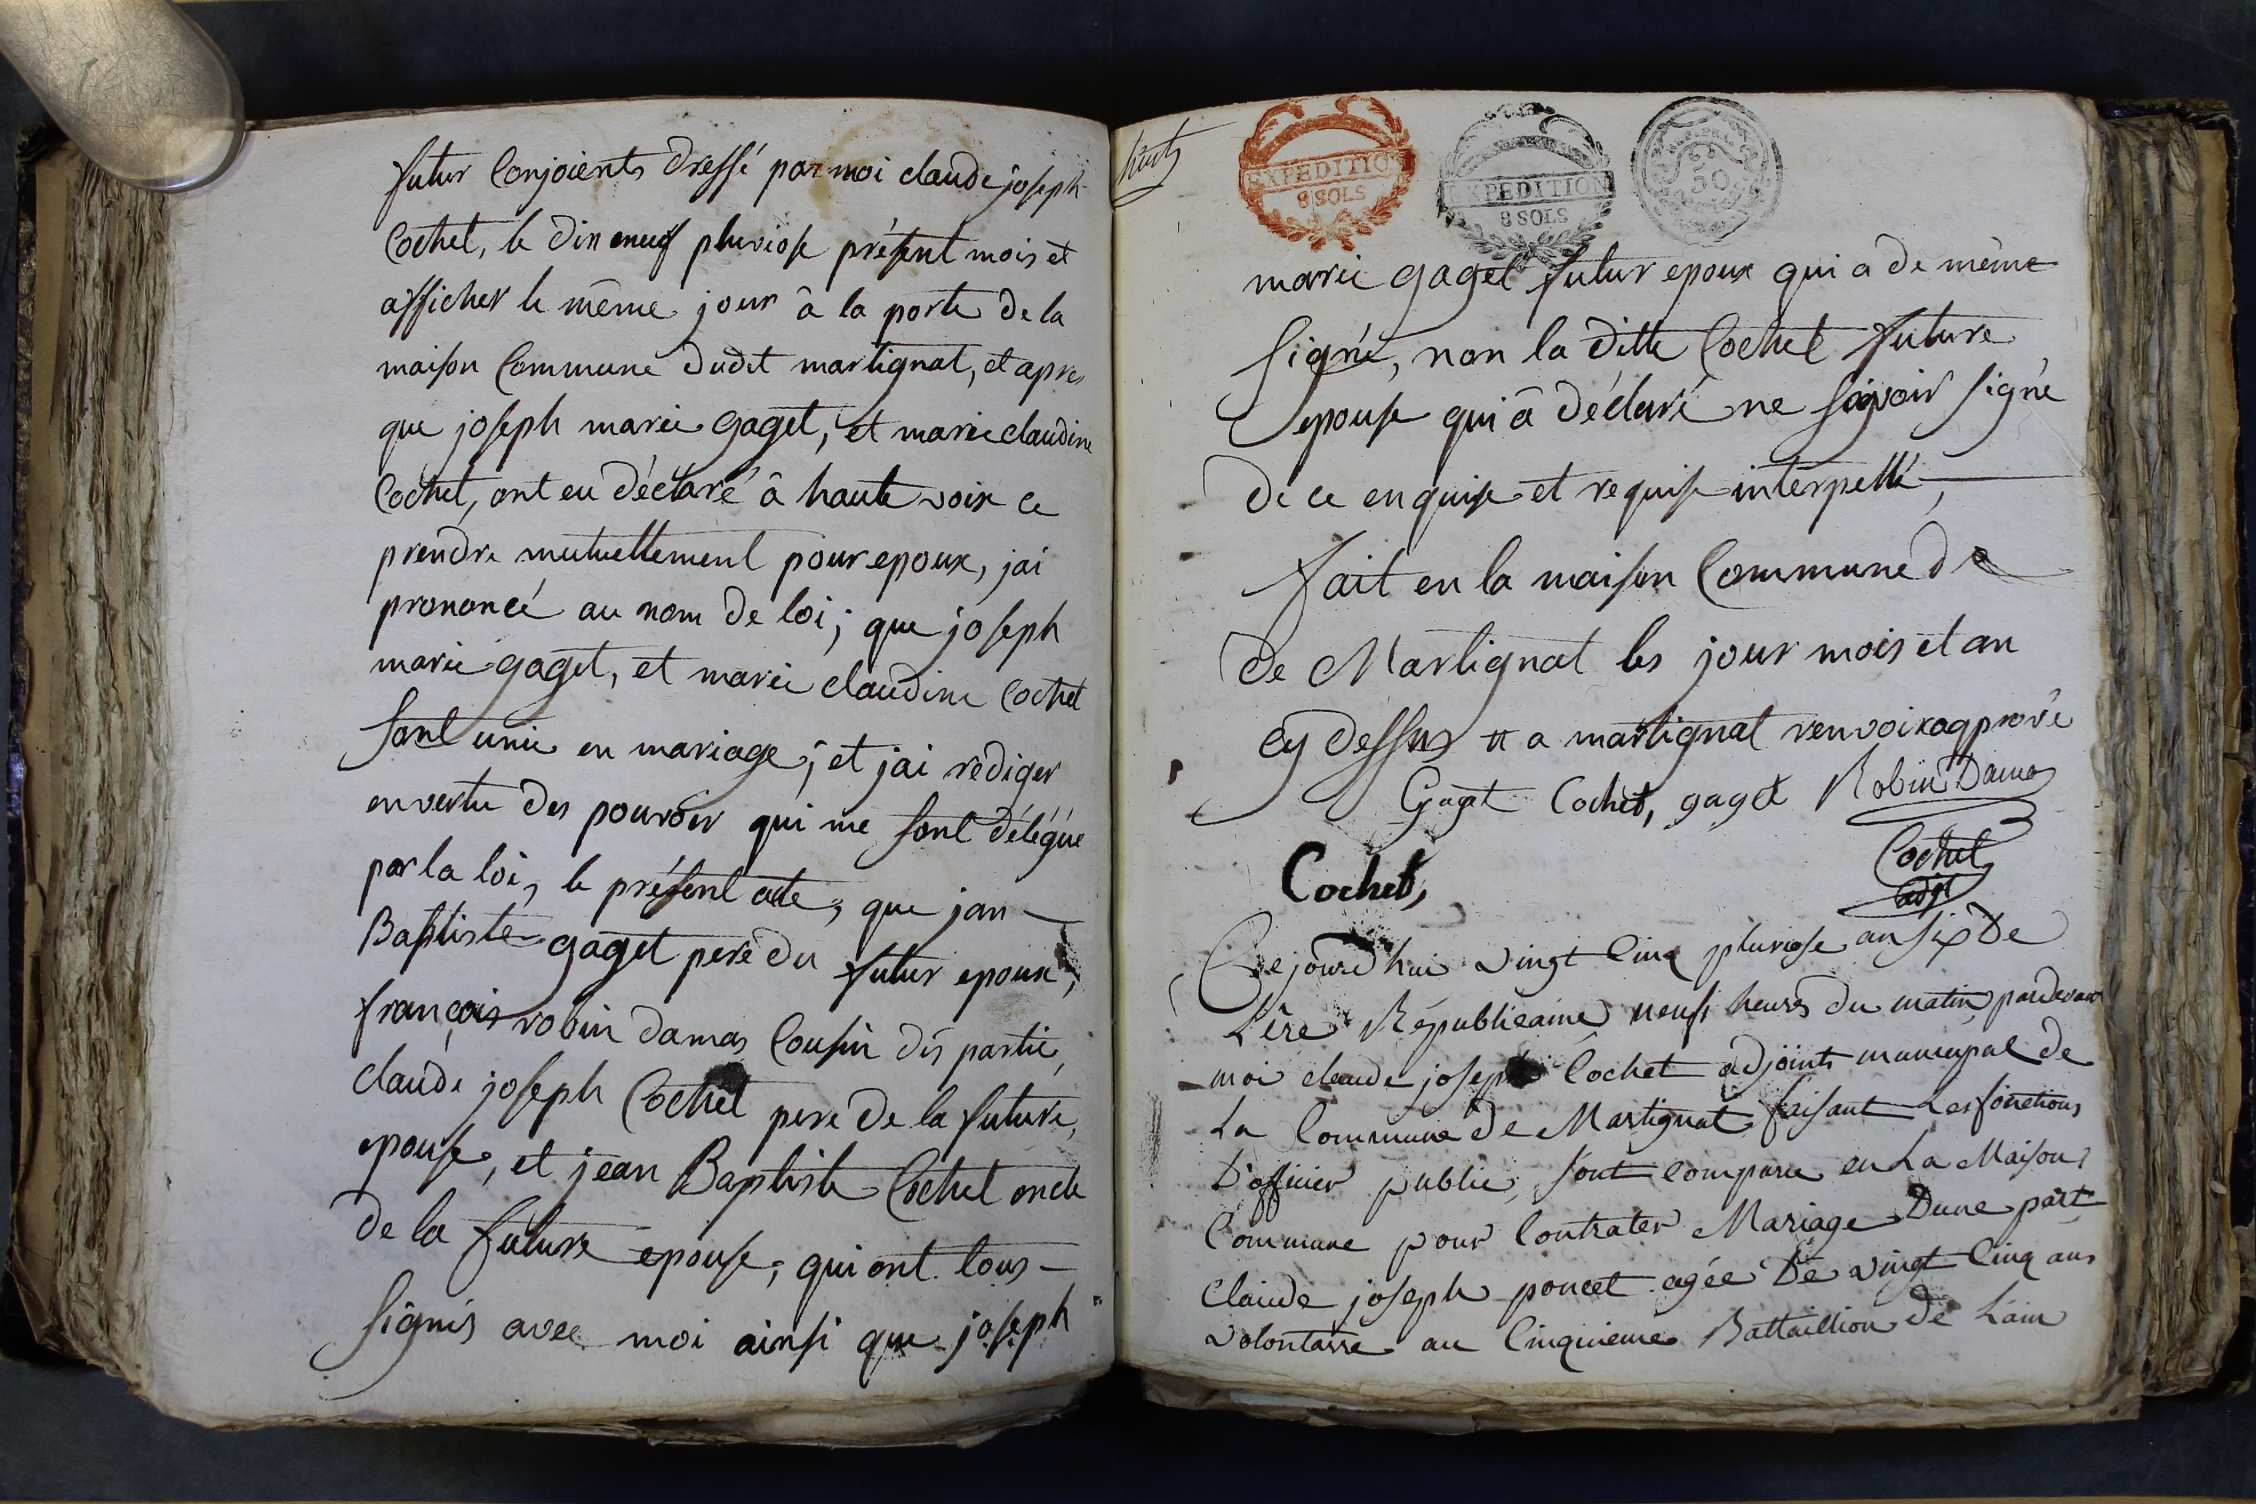 futur Conjoients dressé par moi claude joseph
Cochet, le din eneuf pluviose présent mois et
afficher le même jour â la porte de la
maison Commune dudit martignat, et apres
que joseph marie gaget, et marie claudine
Cochet, ont eu déclaré â haute voix ce
prendre mutuellement pour epoux, jai
prononcé au nom de loi; que joseph
marie gaget, et marie claudine Cochet
sont unie en mariage; et jai rédiger
en vertu des pouvoir qui me sont délégué
par la loi, le présent acte, que jan
Baptiste gaget pere du futur epoux,
françois robin damas Cousin dis partie,
claude joseph Cochet pere de la future,
epouse, et jean Baptiste Cochet oncle
de la future epouse; qui ont tous
signés avec moi ainsi que joseph
huit
EXPEDITION
8 SOLS
EXPEDITION
8 SOLS
50
marie gaget futur epoux qui a de même
signé, non la ditte Cochet future
epouse qui â déclaré ne savoir signé
de ce enquise et requise interpellé,
fait en la maison Commune de
de Martignat les jour mois et an
cy dessus # a martignat renvoix apprové
Gaget Cochet, gaget Robin Damas
Cochet
adjt
Cochet,
Cejourdhui vingt Cinq pluviose an six De
L'ere Républicaine neuf heures du matin pardevant
moi claude joseph Cochet adjoints municipal de
La Commune de Martignat faisant Les fonctions
D'officier public, sont comparu en La Maison
Commune pour Contrater Mariage Dune part
Claude joseph poncet agée De vingt Cinq ans
volontaire au Cinquieme Battaillion de L'ain